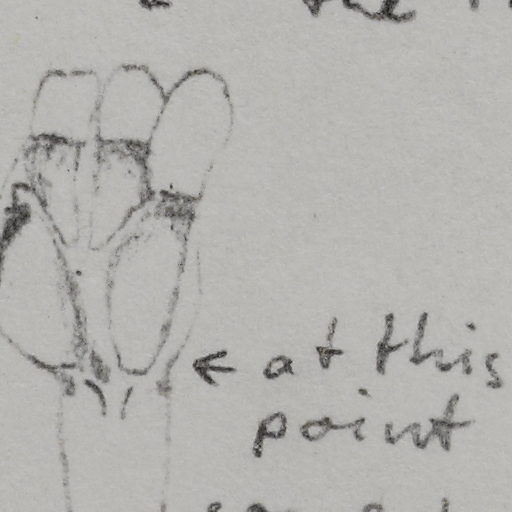 ← at this
point